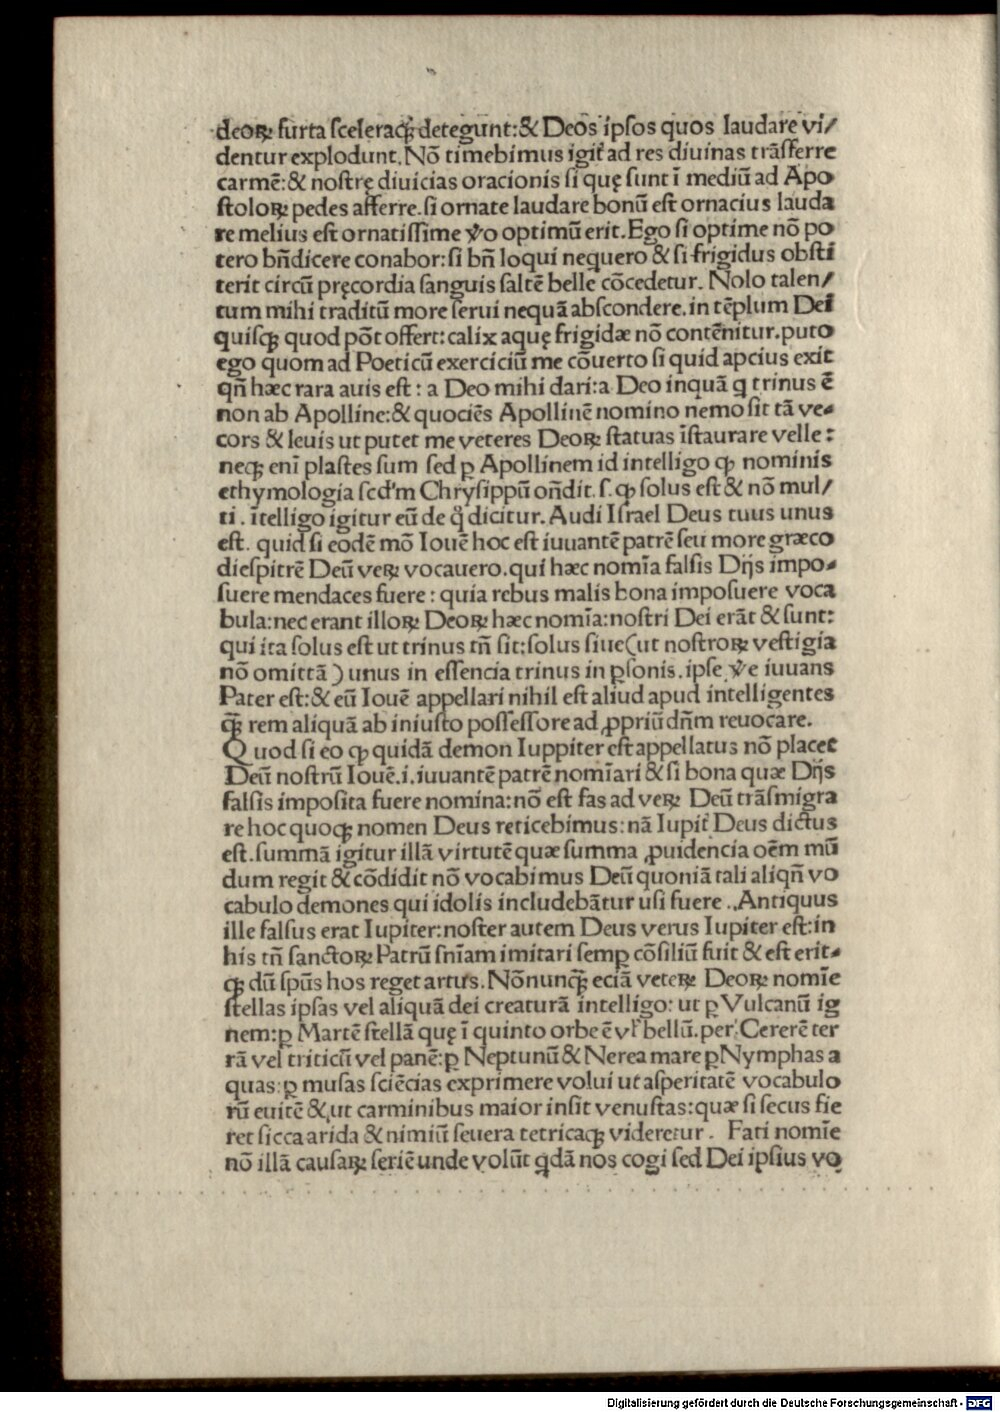 deoꝝ furta ſceleraqꝫ detegunt: & Deos ipſos quos laudare vi/
dentur explodunt. Nō timebimus igit᷑ ad res diuinas trāſferre
carmē: & noſtrę diuicias oracionis ſi quę ſunt ī mediū ad Apo
ſtoloꝝ pedes afferre. ſi ornate laudare bonū eſt ornacius lauda
re melius eſt ornatiſſime ꝟo optimū erit. Ego ſi optime nō po
tero bn̄dicere conabor: ſi bn̄ loqui nequero & ſi frigidus obſti
terit circū pręcordia ſanguis ſaltē belle cōcedetur. Nolo talen/
tum mihi traditū more ſerui nequā abſcondere. in tēplum Dei
quiſqꝫ quod pōt offert: calix aquę frigidæ nō contēnitur. puto
ego quom ad Poeticū exerciciū me cōuerto ſi quid apcius exit
qn̄ hæc rara auis eſt : a Deo mihi dari: a Deo inquā q̇ trinus ē
non ab Apolline: & quociēs Apollinē nomino nemo ſit tā ve⸗
cors & leuis ut putet me veteres Deoꝝ ſtatuas īſtaurare velle :
neqꝫ enī plaſtes ſum ſed ꝑ Apollinem id intelligo ꝙ nominis
ethymologia ſcd'm Chryſippū on̄dit. ſ. ꝙ ſolus eſt & nō mul/
ti . ītelligo igitur eū de q̊ dicitur. Audi Iſrael Deus tuus unus
eſt. quid ſi eodē mō Iouē hoc eſt iuuantē patrē ſeu more græco
dieſpitrē Deū veꝝ vocauero. qui hæc nomīa falſis Dijs impo⸗
ſuere mendaces fuere : quia rebus malis bona impoſuere voca
bula: nec erant illoꝝ Deoꝝ hæc nomīa: noſtri Dei erāt & ſunt:
qui ita ſolus eſt ut trinus tn̄ ſit: ſolus ſiue (ut noſtroꝝ veſtigia
nō omittā ) unus in eſſencia trinus in ꝑſonis. ipſe ꝟe iuuans
Pater eſt: & eū Iouē appellari nihil eſt aliud apud intelligentes
qꝫ̄ rem aliquā ab iniuſto poſſeſſore ad ꝓpriū dn̄m reuocare.
Quod ſi eo ꝙ quidā demon Iuppiter eſt appellatus nō placet
Deū noſtrū Iouē. i. iuuantē patrē nomīari & ſi bona quæ Dijs
falſis impoſita fuere nomina: nō eſt fas ad veꝝ Deū trāſmigra
re hoc quoqꝫ nomen Deus reticebimus: nā Iupit᷑ Deus dictus
eſt. ſummā igitur illā virtutē quæ ſumma ꝓuidencia oēm mū
dum regit & cōdidit nō vocabimus Deū quoniā tali aliqn̄ vo
cabulo demones qui idolis includebātur uſi fuere . Antiquus
ille falſus erat Iupiter: noſter autem Deus verus Iupiter eſt: in
his tn̄ ſanctoꝝ Patrū ſnīam imitari ſemꝑ cōſiliū fuit & eſt erit⸗
qꝫ dū ſpūs hos reget artus. Nōnunqꝫ̄ eciā veteꝝ Deoꝝ nomīe
ſtellas ipſas vel aliquā dei creaturā intelligo: ut ꝑ Vulcanū ig
nem: ꝑ Martē ſtellā quę ī quinto orbe ē vl' bellū. per Cererē ter
rā vel triticū vel panē: ꝑ Neptunū & Nerea mare ꝑ Nymphas a
quas: ꝑ muſas ſciēcias exprimere volui ut aſperitatē vocabulo
rū euitē & ut carminibus maior inſit venuſtas: quæ ſi ſecus fie
ret ſicca arida & nimiū ſeuera tetricaqꝫ videretur . Fati nomīe
nō illā cauſaꝝ ſeriē unde volūt q̇dā nos cogi ſed Dei ipſius vo
Digitalisierung gefördert durch die Deutsche Forschungsgemeinschaft - DFG